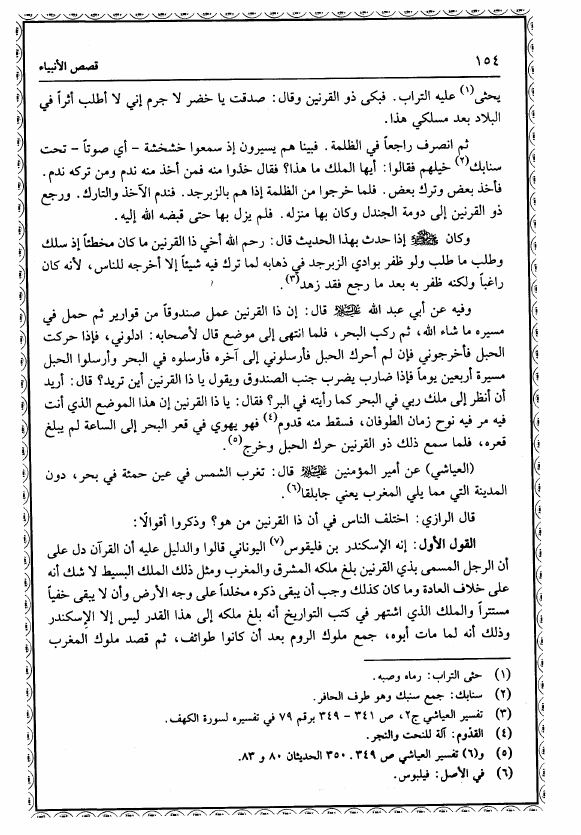 ١٥٤
قصص الأنبياء
يحثى(١) عليه التراب. فبكى ذو القرنين وقال: صدقت يا خضر لا جرم إني لا أطلب أثراً في
البلاد بعد مسلكي هذا.
ثم انصرف راجعاً في الظلمة. فبينا هم يسيرون إذ سمعوا خشخشة – أي صوتاً – تحت
سنابك(٢) خيلهم فقالوا: أيها الملك ما هذا؟ فقال خذوا منه فمن أخذ منه ندم ومن تركه ندم.
فأخذ بعض وترك بعض. فلما خرجوا من الظلمة إذا هم بالزبرجد. فندم الآخذ والتارك. ورجع
ذو القرنين إلى دومة الجندل وكان بها منزله. فلم يزل بها حتى قبضه الله إليه.
وكان ﷺ إذا حدث بهذا الحديث قال: رحم الله أخي ذا القرنين ما كان مخطئاً إذ سلك
وطلب ما طلب ولو ظفر بوادي الزبرجد في ذهابه لما ترك فيه شيئاً إلا أخرجه للناس، لأنه كان
راغباً ولكنه ظفر به بعد ما رجع فقد زهد(٣).
وفيه عن أبي عبد الله عليه السلام قال: إن ذا القرنين عمل صندوقاً من قوارير ثم حمل في
مسيره ما شاء الله، ثم ركب البحر، فلما انتهى إلى موضع قال لأصحابه: ادلوني، فإذا حركت
الحبل فأخرجوني فإن لم أحرك الحبل فأرسلوني إلى آخره فأرسلوه في البحر وأرسلوا الحبل
مسيرة أربعين يوماً فإذا ضارب يضرب جنب الصندوق ويقول يا ذا القرنين أين تريد؟ قال: أريد
أن أنظر إلى ملك ربي في البحر كما رأيته في البر؟ فقال: يا ذا القرنين إن هذا الموضع الذي أنت
فيه مر فيه نوح زمان الطوفان، فسقط منه قدوم(٤) فهو يهوي في قعر البحر إلى الساعة لم يبلغ
قعره، فلما سمع ذلك ذو القرنين حرك الحبل وخرج(٥).
(العياشي) عن أمير المؤمنين عليه السلام قال: تغرب الشمس في عين حمئة في بحر، دون
المدينة التي مما يلي المغرب يعني جابلقا(٦).
قال الرازي: اختلف الناس في أن ذا القرنين من هو؟ وذكروا أقوالاً:
القول الأول: إنه الإسكندر بن فليقوس(٧) اليوناني قالوا والدليل عليه أن القرآن دل على
أن الرجل المسمى بذي القرنين بلغ ملكه المشرق والمغرب ومثل ذلك الملك البسيط لا شك أنه
على خلاف العادة وما كان كذلك وجب أن يبقى ذكره مخلداً على وجه الأرض وأن لا يبقى خفياً
مستتراً والملك الذي اشتهر في كتب التواريخ أنه بلغ ملكه إلى هذا القدر ليس إلا الإسكندر
وذلك أنه لما مات أبوه، جمع ملوك الروم بعد أن كانوا طوائف، ثم قصد ملوك المغرب
(١) حثى التراب: رماه وصبه.
(٢) سنابك: جمع سنبك وهو طرف الحافر.
(٣) تفسير العياشي ج٢، ص ٣٤١ – ٣٤٩ برقم ٧٩ في تفسيره لسورة الكهف.
(٤) القدّوم: آلة للنحت والنجر.
(٥) و(٦) تفسير العياشي ص ٣٤٩. ٣٥٠ الحديثان ٨٠ و ٨٣.
(٦) في الأصل: فيلبوس.